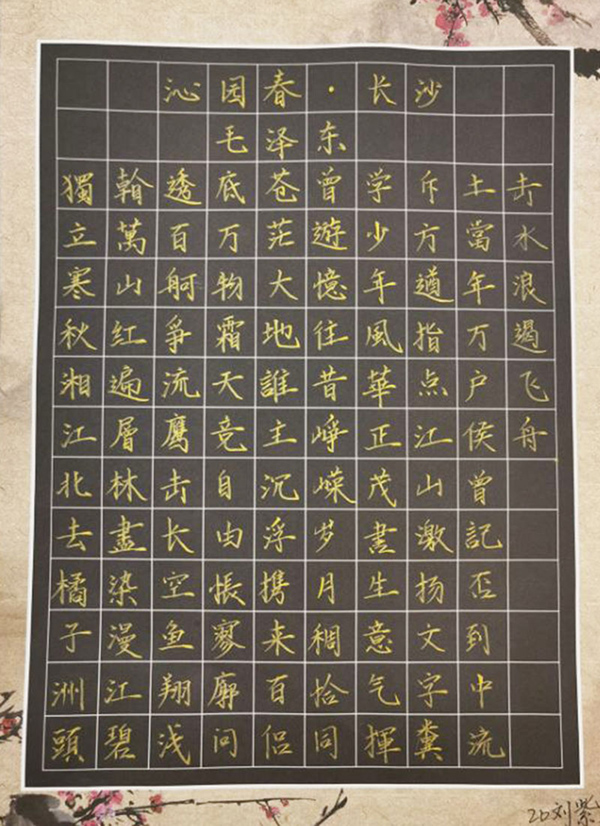 沁园春·长沙
毛泽东
獨立寒秋湘江北去橘子洲頭
翰萬山紅遍層林盡染漫江碧
透百舸爭流鹰击长空鱼翔浅
底万物霜天竞自由悵寥廓问
苍茫大地誰主沉浮携来百侣
曾遊憶往昔峥嵘岁月稠恰同
学少年風華正茂書生意气揮
斥方遒指点江山激扬文字糞
土當年万户侯曾記否到中流
击水浪遏飞舟
刘紫